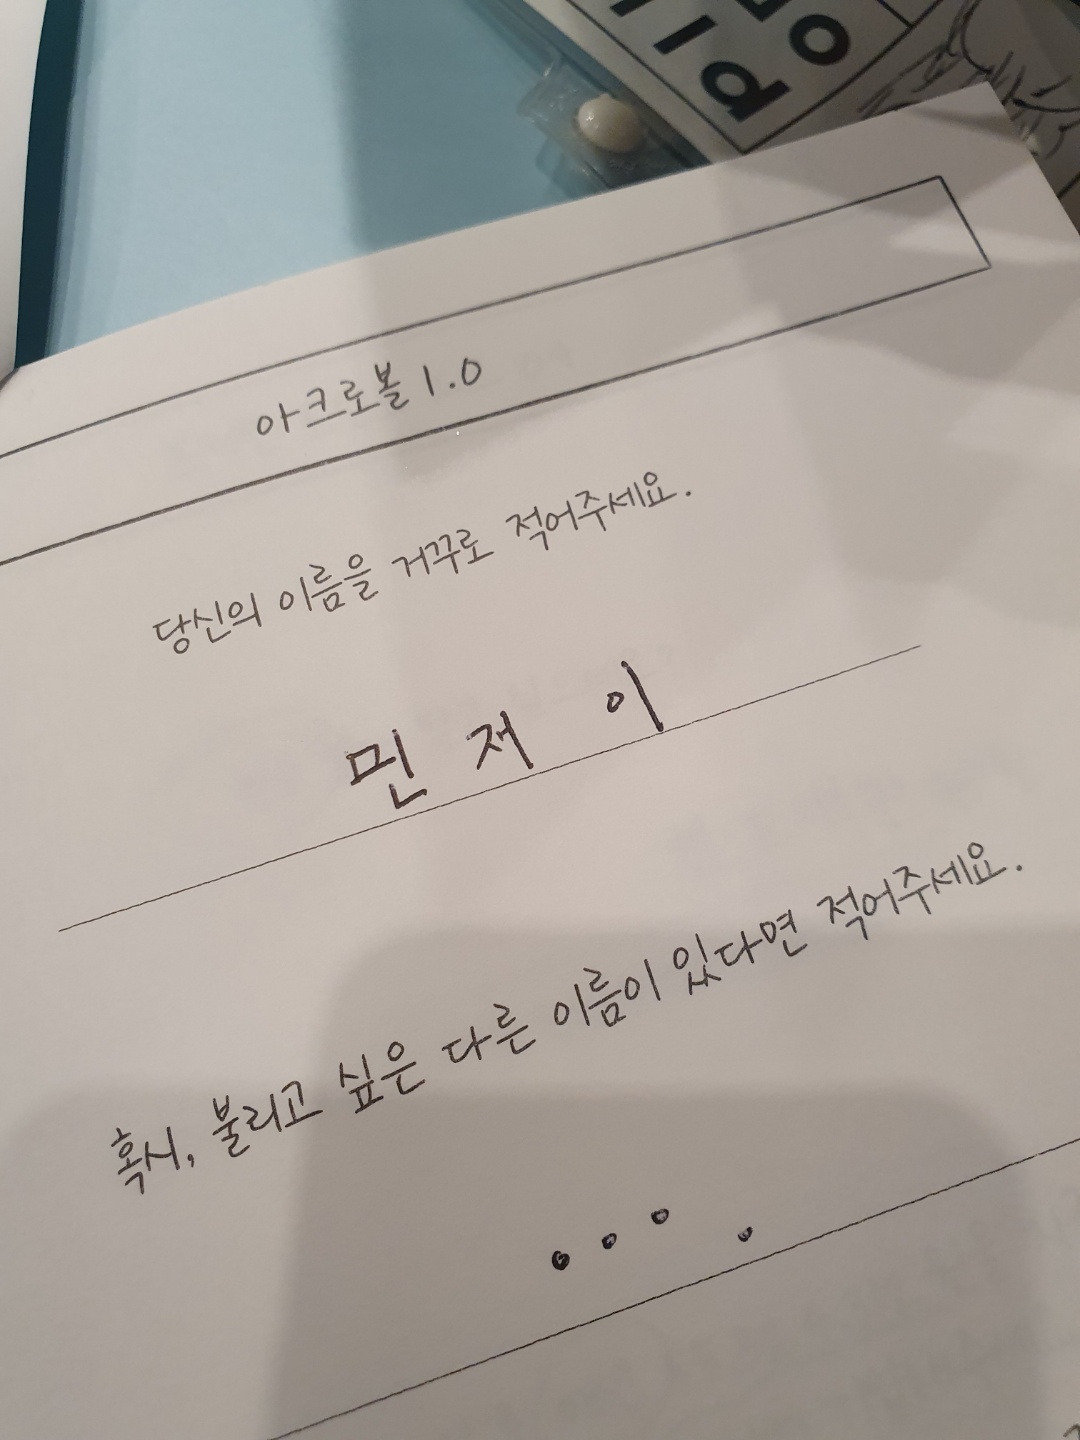 아크로볼 1.0
당신의 이름을 거꾸로 적어주세요.
민 저 이
혹시, 불리고 싶은 다른 이름이 있다면 적어주세요.